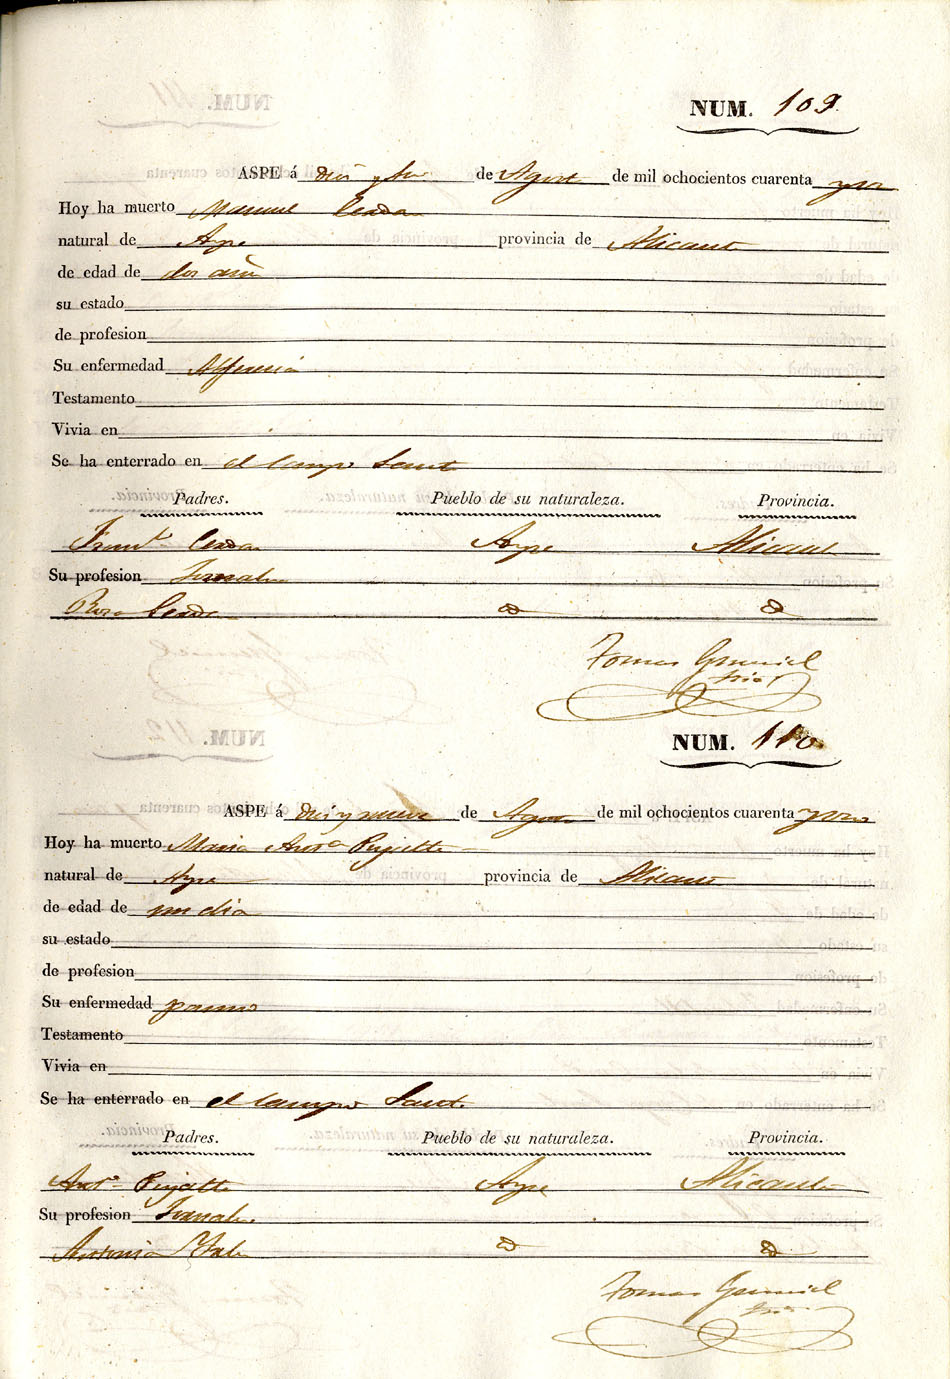 NUM. 109.
ASPE á diez y de Agosto de mil ochocientos cuarenta y
Hoy ha muerto Manuel Cerdan
natural de Aspe provincia de Alicante
de edad de dos añ
su estado
de profesion
Su enfermedad Alferecia
Testamento
Vivia en
Se ha enterrado en el Campo Santo
Padres. Pueblo de su naturaleza. Provincia.
Cerdan Aspe Alicante
Su profesion Jornalero
Rosa
NUM. 110
ASPE á diez y nueve de Agosto de mil ochocientos cuarenta y
Hoy ha muerto Maria Antª
natural de Aspe provincia de Alicante
de edad de un dia
su estado
de profesion
Su enfermedad pasmo
Testamento
Vivia en
Se ha enterrado en el Campo Sant.
Padres. Pueblo de su naturaleza. Provincia.
Antº Aspe Alicante
Su profesion Jornalero
Antonia
Tomas